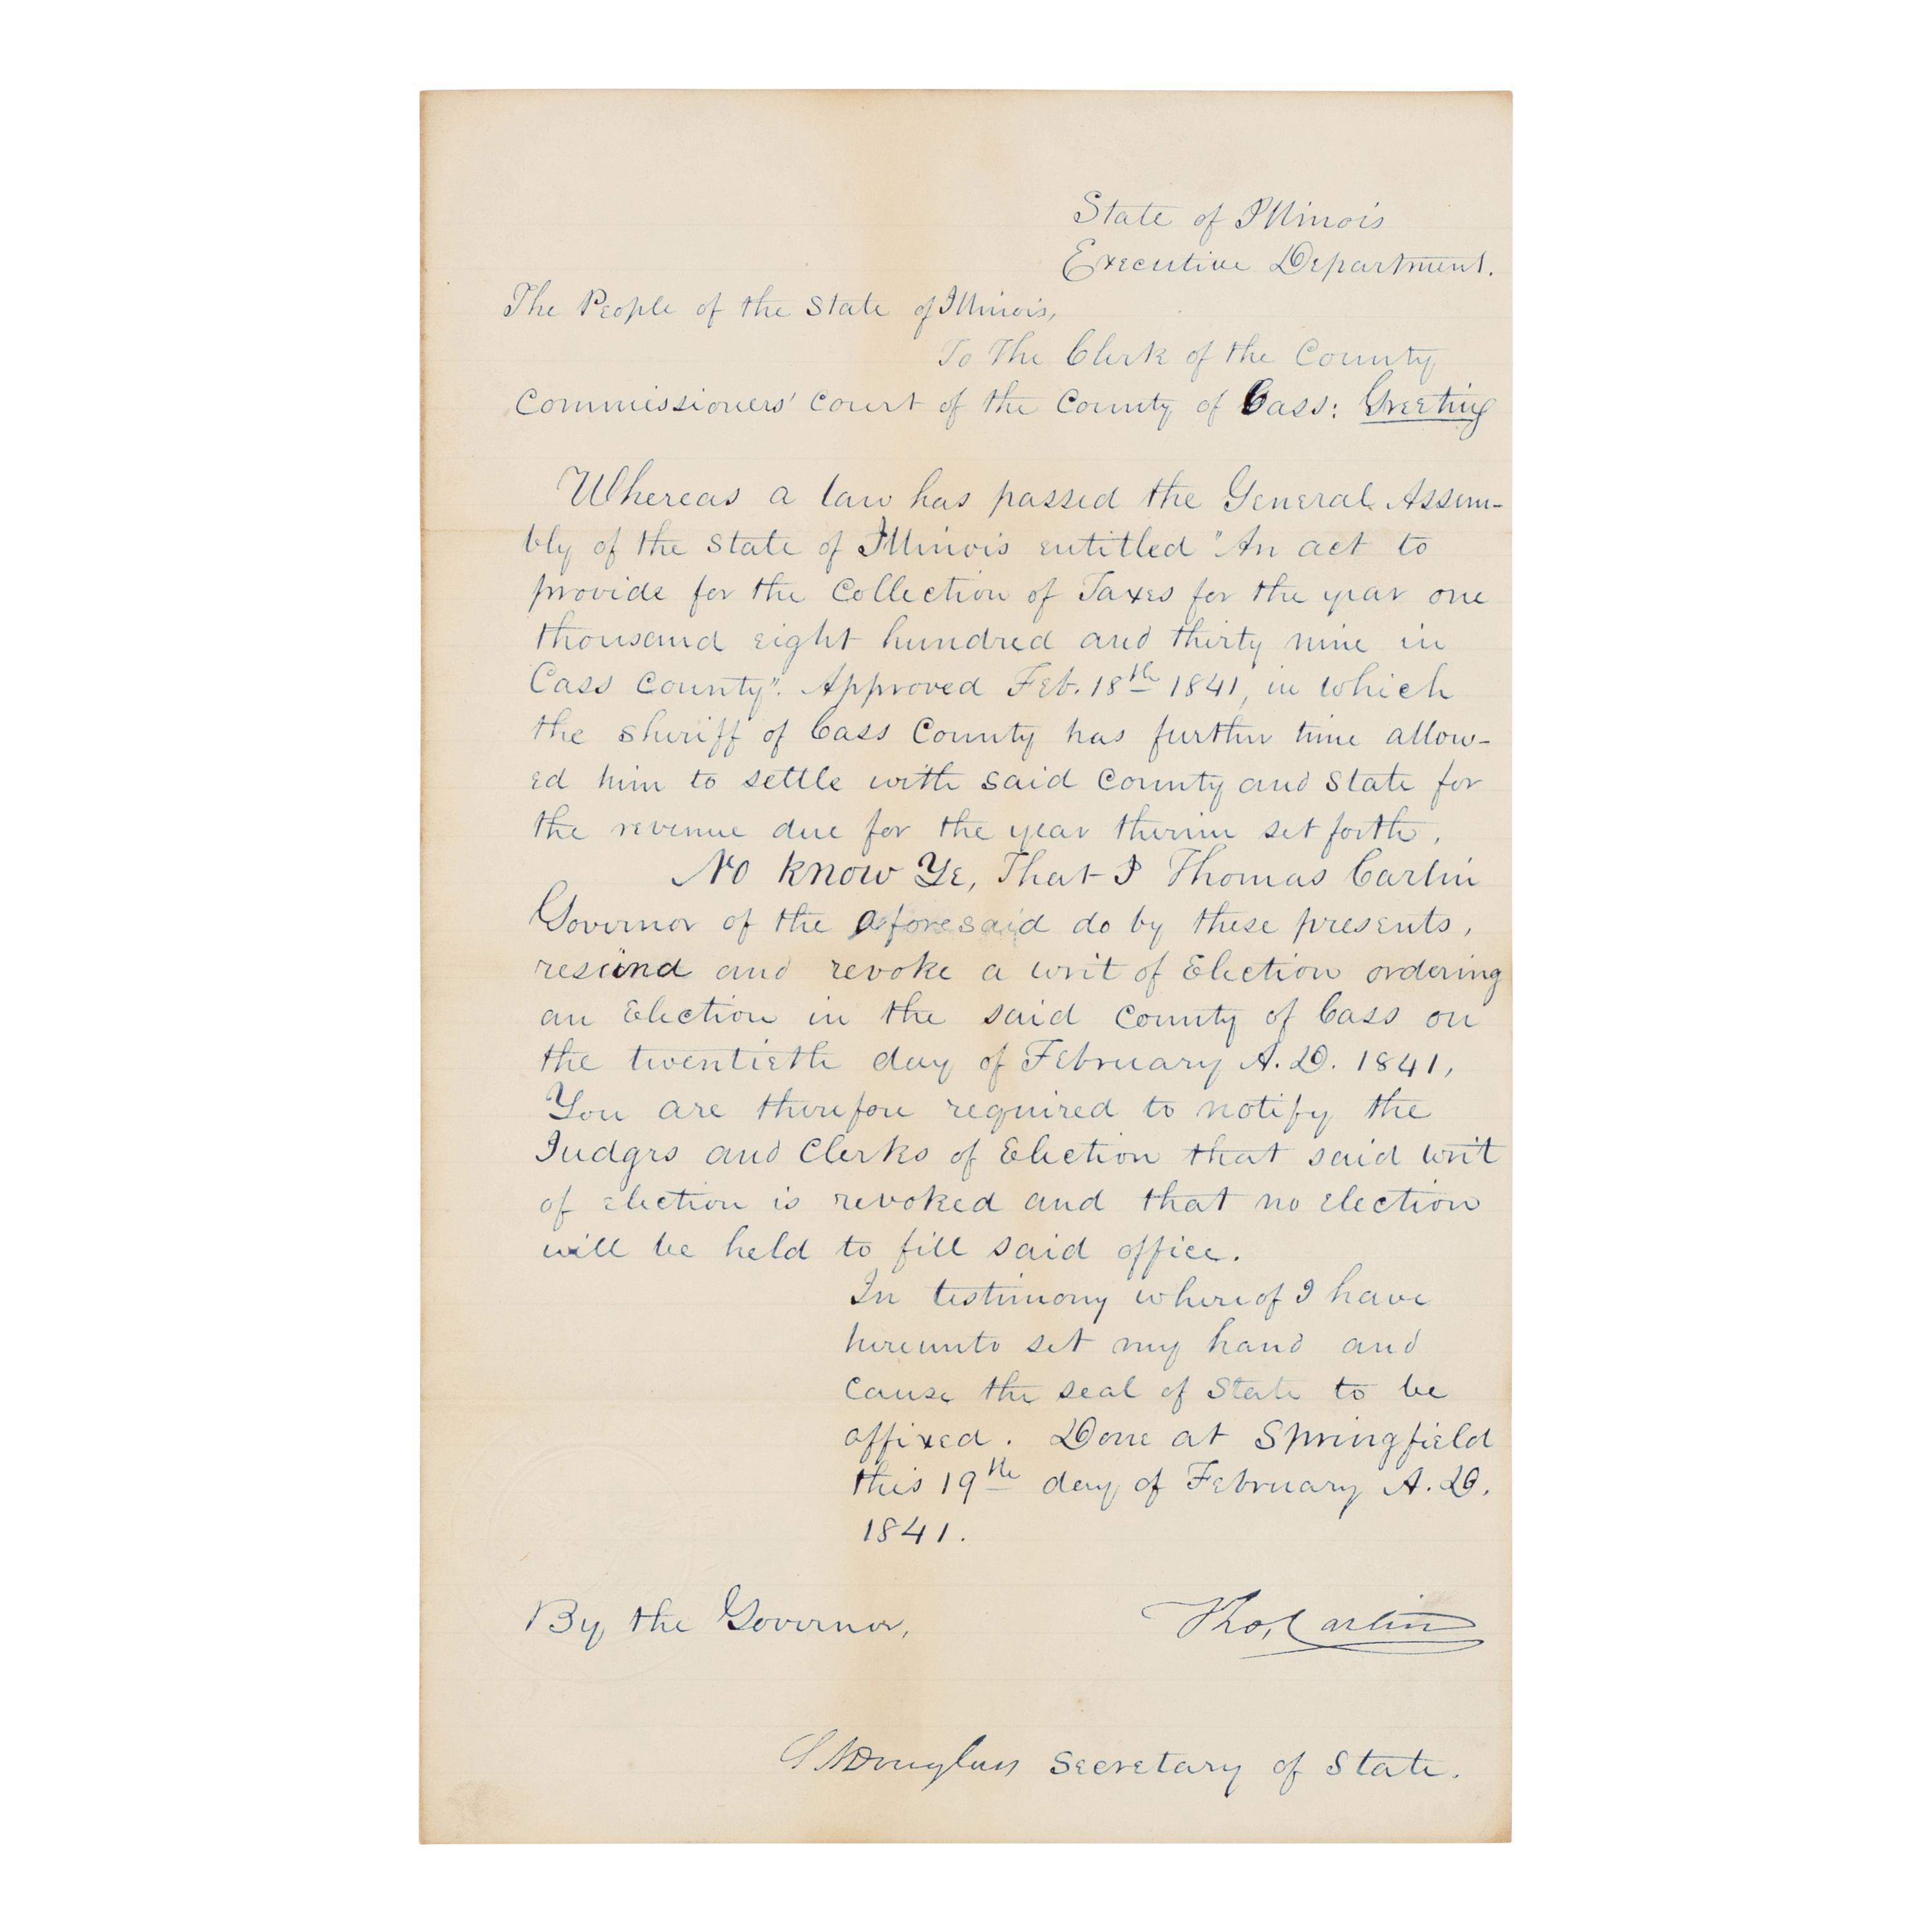 State of Illinois
Executive Department.
The People of the State of Illinois,
To The Clerk of the County
Commissioners' Court of the County of Cass: Greeting
Whereas a law has passed the General Assem-
bly of the State of Illinois entitled "An act to
provide for the Collection of Taxes for the year one
thousand eight hundred and thirty nine in
Cass County". Approved Feb. 18th 1841, in which
the sheriff of Cass County has further time allow-
ed him to settle with said County and State for
the revenue due for the year therein set forth.
No Know Ye, That I Thomas Carlin
Governor of the aforesaid do by these presents,
rescind and revoke a writ of Election ordering
an Election in the said County of Cass on
the twentieth day of February A.D. 1841,
You are therefore required to notify the
Judges and Clerks of Election that said writ
of election is revoked and that no election
will be held to fill said office.
In testimony whereof I have
hereunto set my hand and
cause the seal of State to be
affixed. Done at Springfield
this 19th day of February A.D.
1841.
By the Governor,
Tho, Carlin
S A Douglass Secretary of State.